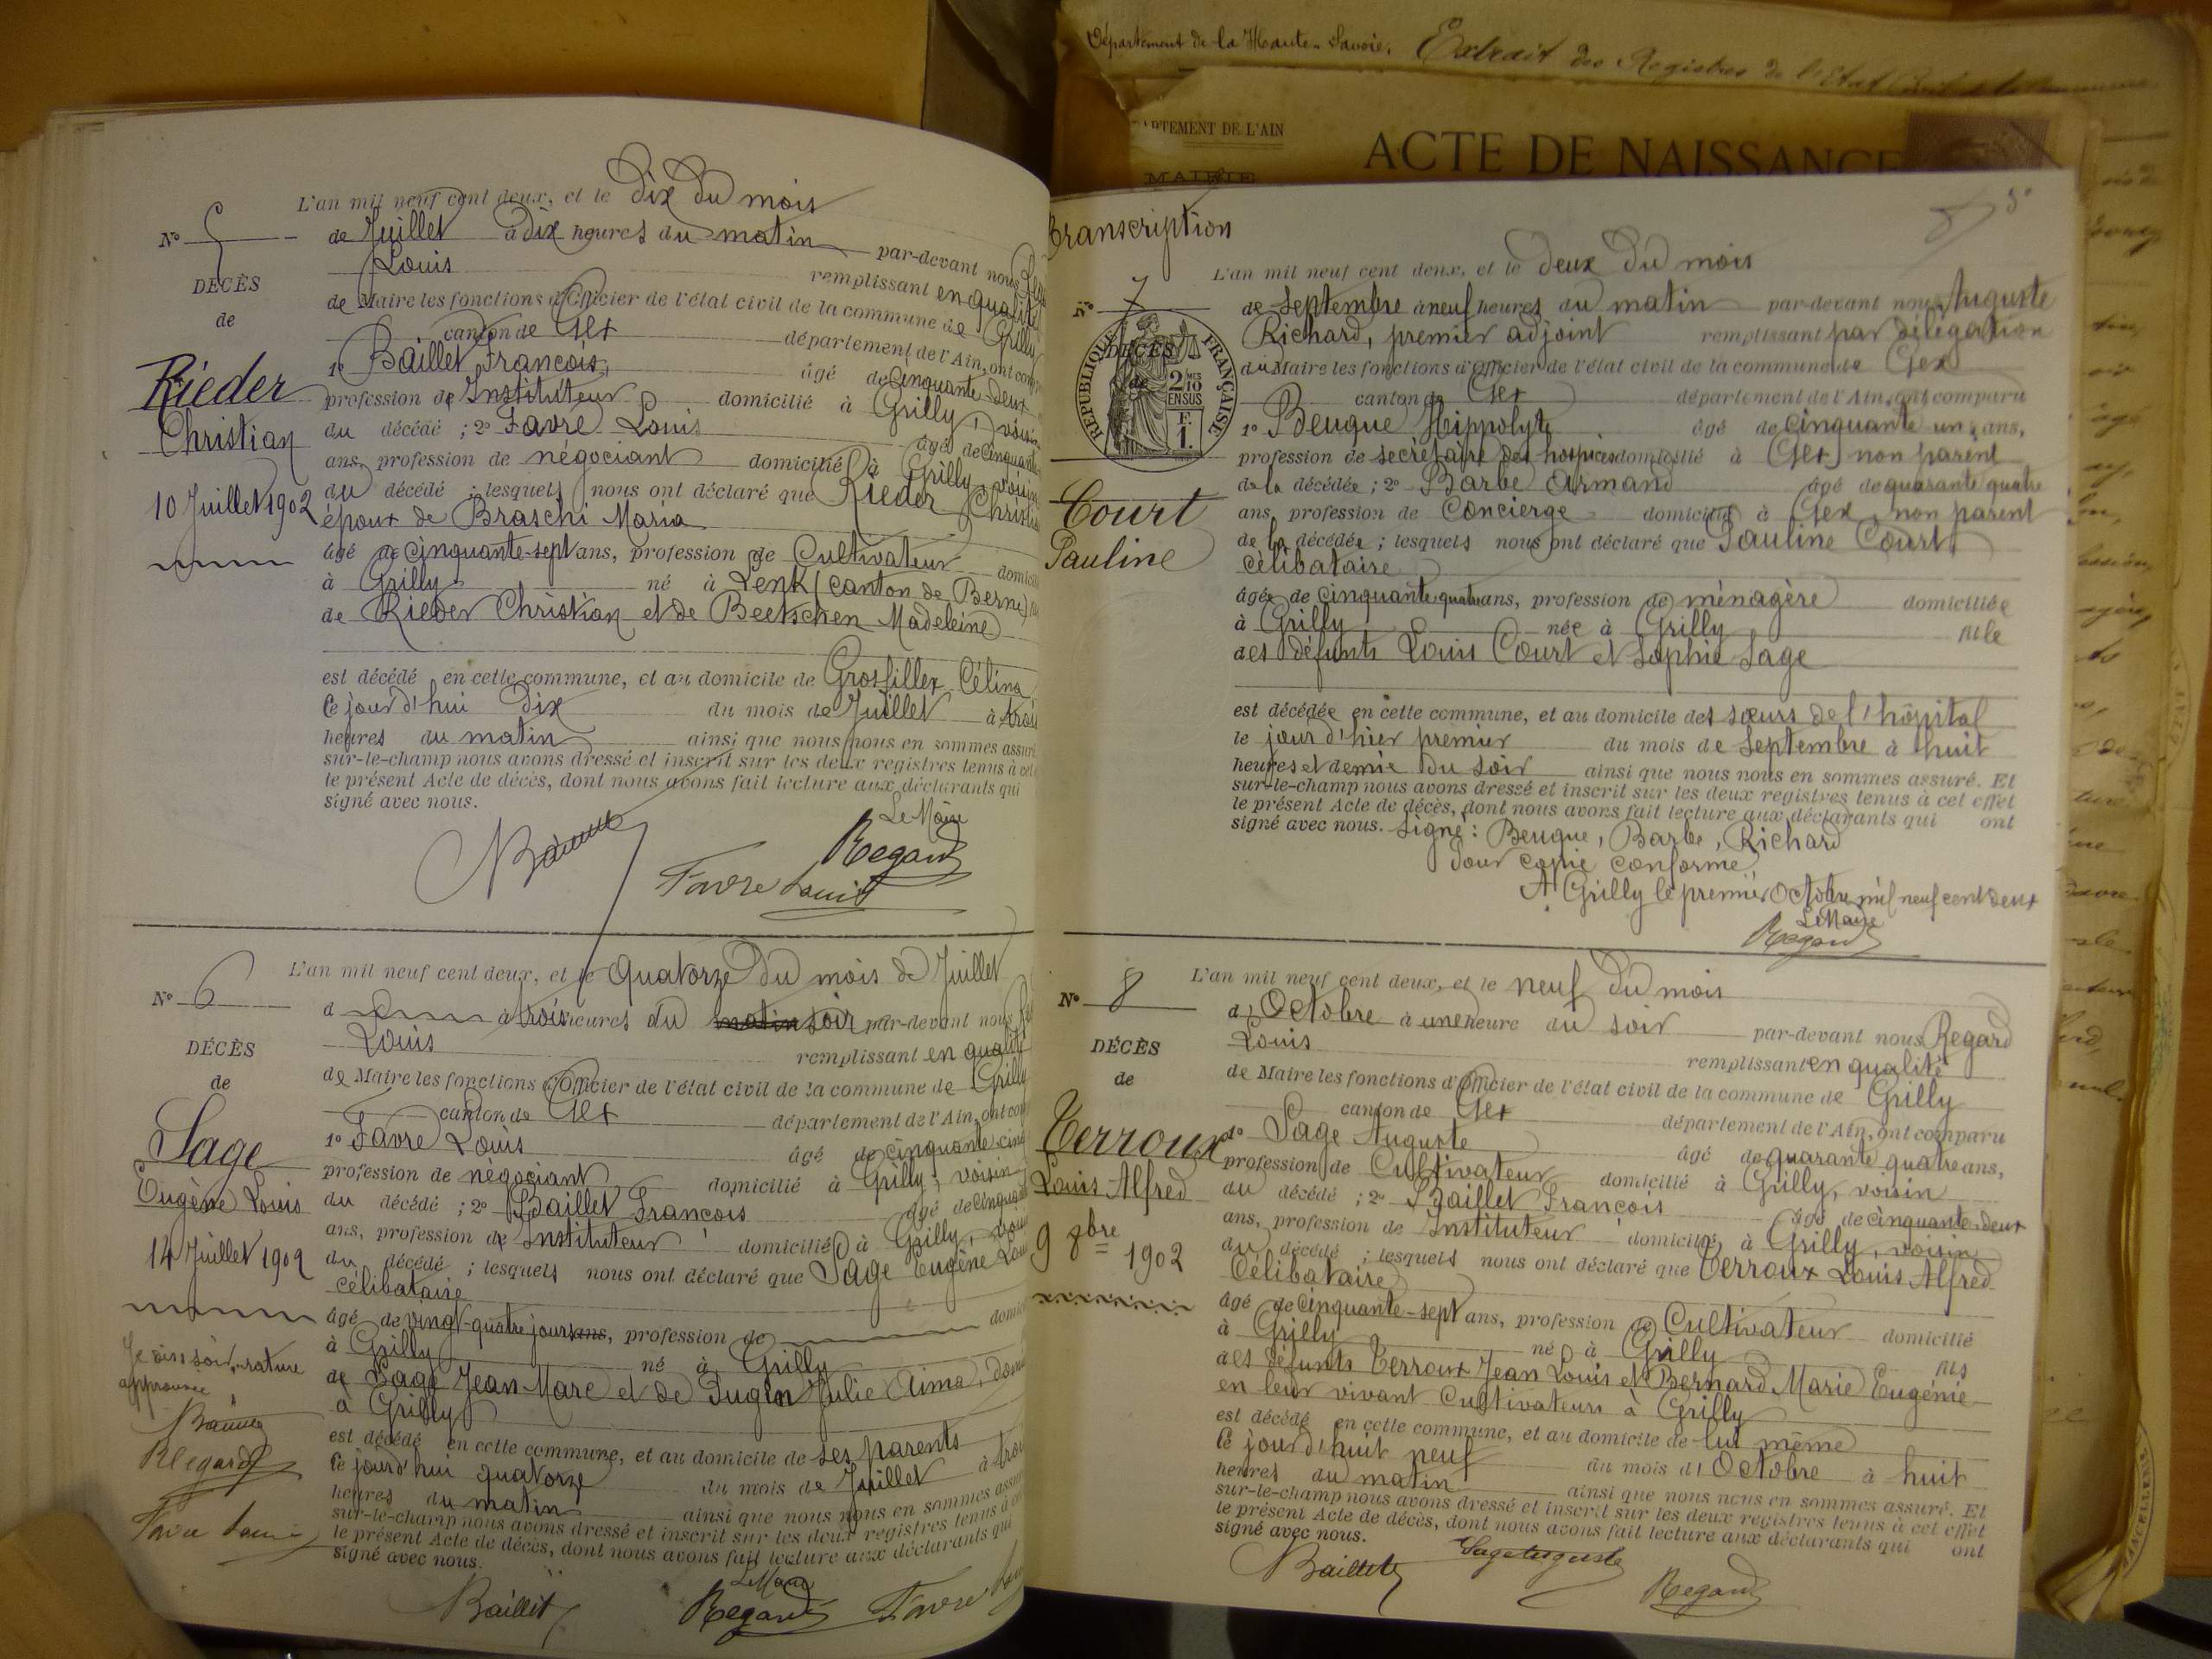 Département de la Haute-Savoie. Extrait des Registres de l'Etat
ARTEMENT DE L'AIN
ACTE DE NAISSANCE
MAIRIE
L'an mil neuf cent deux, et le dix du mois
N° 5
de Juillet à dix heures du matin par-devant nous
Louis remplissant en qualité
DÉCÈS
de
de Maire les fonctions d'Officier de l'état civil de la commune de Grilly
canton de Gex département de l'Ain, ont
Rieder
Christian
10 Juillet 1902
1° Baillet François, âgé de cinquante deux
profession de Instituteur domicilié à Grilly, voisin
du décédé ; 2° Favre Louis âgé de cinquante
ans, profession de négociant domicilié à Grilly, voisin
du décédé ; lesquels nous ont déclaré que Rieder
époux de Braschi Maria
âgé de cinquante-sept ans, profession de Cultivateur
à Grilly né à Lenk (canton de Berne)
de Rieder Christian et de Beetschen Madeleine
est décédé en cette commune, et au domicile de Grosfillex Célina
Ce jourd'hui dix du mois de Juillet à trois
heures du matin ainsi que nous nous en sommes
sur-le-champ nous avons dressé et inscrit sur les deux registres tenus à
le présent Acte de décès, dont nous avons fait lecture aux déclarants qui
signé avec nous.
Le Maire
Regard
Favre Louis
L'an mil neuf cent deux, et le quatorze du mois de Juillet
N° 6
à trois heures du matin soir par-devant nous
Louis remplissant en qualité
DÉCÈS
de
de Maire les fonctions d'Officier de l'état civil de la commune de Grilly
canton de Gex département de l'Ain, ont
Sage
Eugène Louis
14 Juillet 1902
1° Favre Louis âgé de cinquante cinq
profession de négociant domicilié à Grilly, voisin
du décédé ; 2° Baillet François âgé de
ans, profession de Instituteur domicilié à Grilly,
du décédé ; lesquels nous ont déclaré que Sage Eugène
célibataire
âgé de vingt-quatre jours ans, profession de
à Grilly né à Grilly
de Sage Jean Marc et de Dugin Julie
à Grilly
soir, rature
approuvée
Regard
Favre Louis
est décédé en cette commune, et au domicile de ses parents
Ce jourd'hui quatorze du mois de Juillet à
heures du matin ainsi que nous nous en sommes
sur-le-champ nous avons dressé et inscrit sur les deux registres tenus à
le présent Acte de décès, dont nous avons fait lecture aux déclarants qui
signé avec nous.
Le Maire
Baillet Regard Favre
Transcription
L'an mil neuf cent deux, et le deux du mois
N° 7
de septembre à neuf heures du matin par-devant nous Auguste
Richard, premier adjoint remplissant par délégation
DÉCÈS
de
RÉPUBLIQUE FRANÇAISE
2/10 MES
EN SUS
F.
1.
du Maire les fonctions d'Officier de l'état civil de la commune de Gex
canton de Gex département de l'Ain, ont comparu
1° Beugue Hippolyte âgé de cinquante un ans,
profession de secrétaire des hospices domicilié à Gex, non parent
de la décédée ; 2° Barbe Armand âgé de quarante quatre
ans, profession de Concierge domicilié à Gex, non parent
Court
Pauline
de la décédée ; lesquels nous ont déclaré que Pauline Court,
célibataire
âgée de cinquante quatre ans, profession de ménagère domiciliée
à Grilly née à Grilly fille
des défunts Louis Court et Sophie Sage
est décédée en cette commune, et au domicile des sœurs de l'hôpital
le jour d'hier premier du mois de septembre à huit
heures et demie du soir ainsi que nous nous en sommes assuré. Et
sur-le-champ nous avons dressé et inscrit sur les deux registres tenus à cet effet
le présent Acte de décès, dont nous avons fait lecture aux déclarants qui ont
signé avec nous. Signé : Beugue, Barbe, Richard
Pour copie conforme
A Grilly le premier Octobre mil neuf cent deux
Le Maire
Regard
L'an mil neuf cent deux, et le neuf du mois
N° 8
d'Octobre à une heure du soir par-devant nous Regard
Louis remplissant en qualité
DÉCÈS
de
de Maire les fonctions d'Officier de l'état civil de la commune de Grilly
canton de Gex département de l'Ain, ont comparu
Terroux
Louis Alfred
9 8bre 1902
1° Sage Auguste âgé de quarante quatre ans,
profession de Cultivateur domicilié à Grilly, voisin
du décédé ; 2° Baillet François âgé de cinquante-deux
ans, profession de Instituteur domicilié à Grilly, voisin
du décédé ; lesquels nous ont déclaré que Terroux Louis Alfred
Célibataire
âgé de cinquante-sept ans, profession de Cultivateur domicilié
à Grilly né à Grilly fils
des défunts Terroux Jean Louis et Bernard Marie Eugénie
en leur vivant Cultivateurs à Grilly
est décédé en cette commune, et au domicile de lui même
Ce jourd'huit neuf du mois d'Octobre à huit
heures du matin ainsi que nous nous en sommes assuré. Et
sur-le-champ nous avons dressé et inscrit sur les deux registres tenus à cet effet
le présent Acte de décès, dont nous avons fait lecture aux déclarants qui ont
signé avec nous.
Baillet Sage Auguste Regard